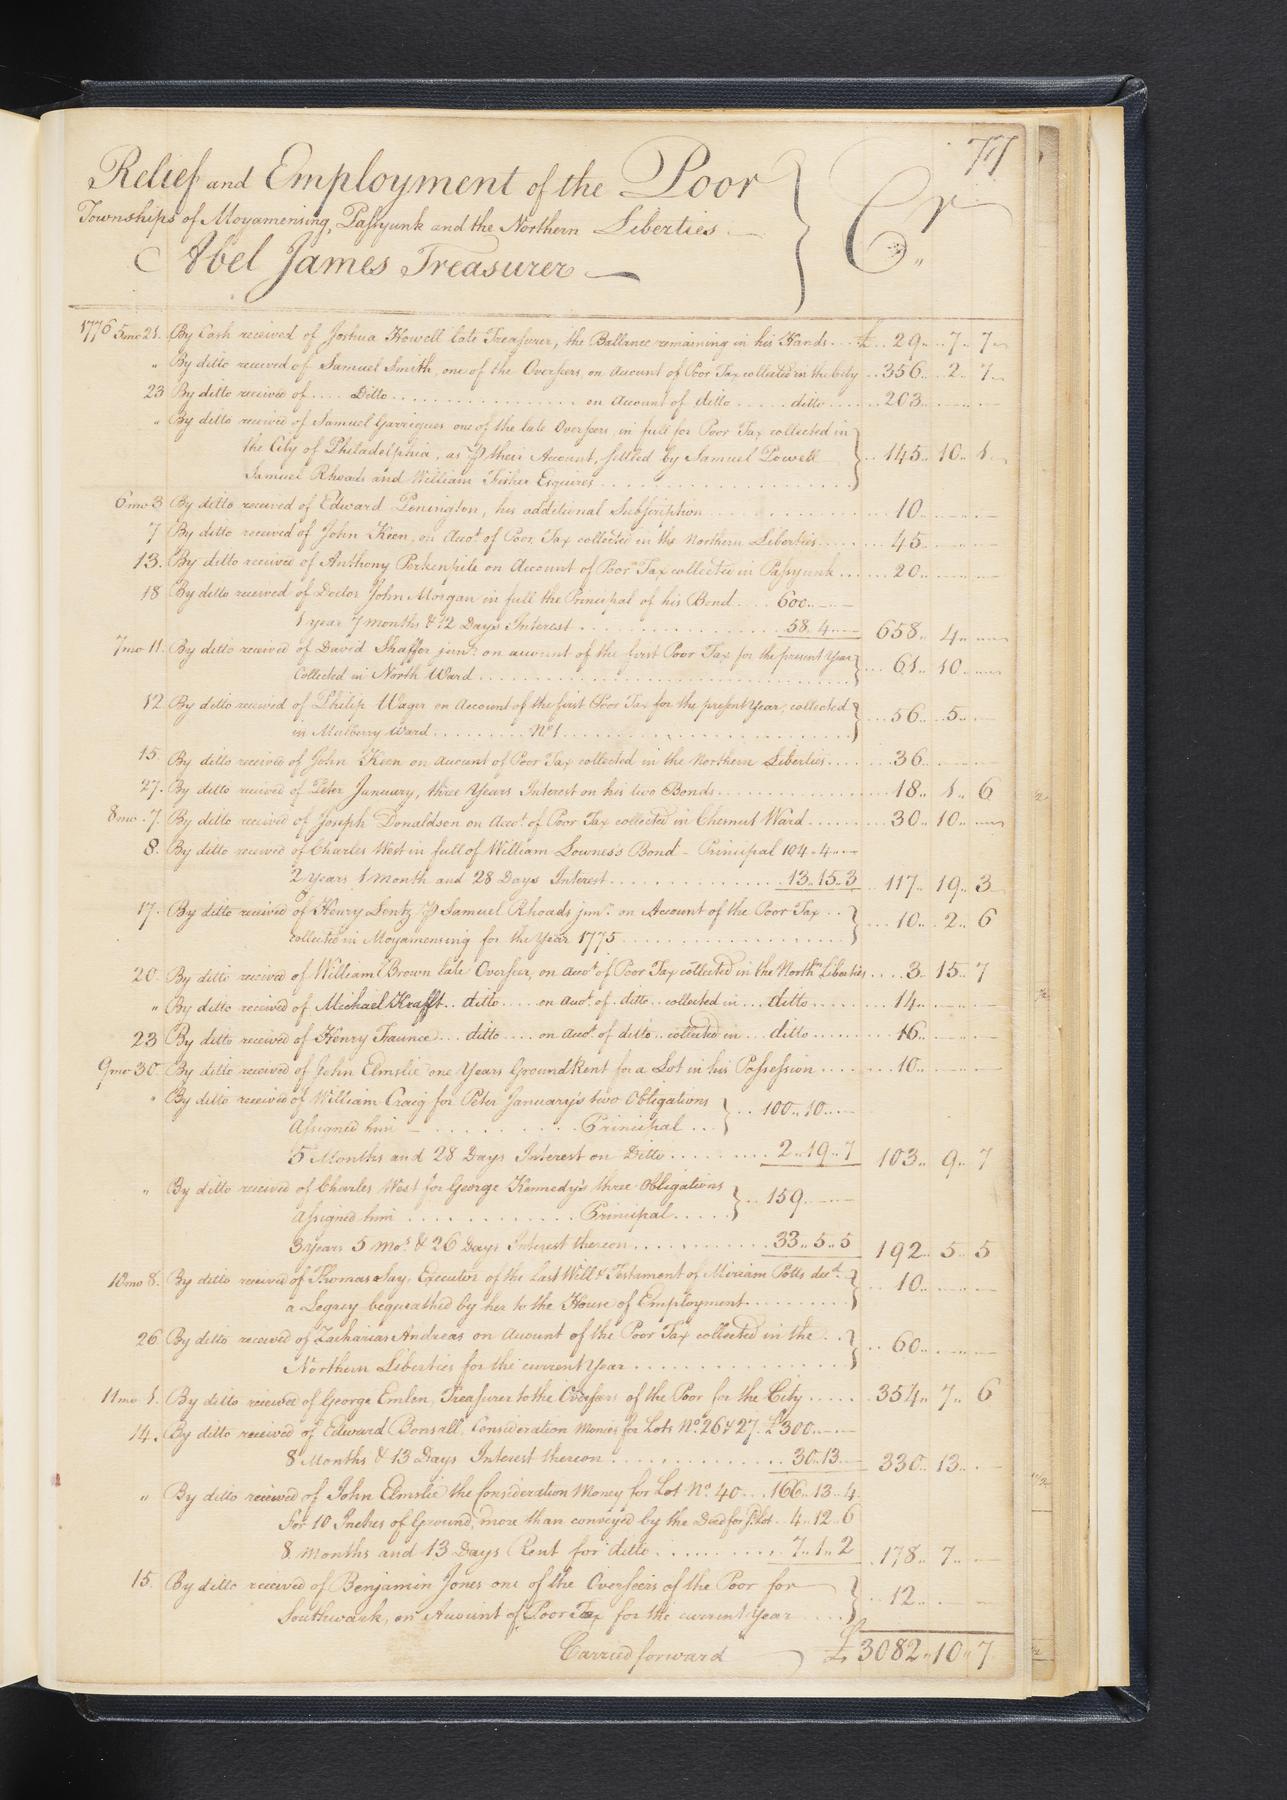 77
Relief and Employment of the Poor
Townships of Moyamensing, Passyunk and the Northern Liberties
Abel James Treasurer
Cr
1776 5mo 21. By Cash received of Joshua Howell late Treasurer, the Ballance remaining in his Hands £ 29 .. 7 .. 7
" By ditto received of Samuel Smith, one of the Overseers, on Account of Poor Tax collected in the City 356 .. 2 .. 7
23 By ditto received of .... Ditto ........ on Account of ditto ..... ditto ..... 203 .. — .. —
" By ditto received of Samuel Garrigues one of the late Overseers, in full for Poor Tax collected in
the City of Philadelphia, as ⅌ their Account, settled by Samuel Powell 145 .. 10 .. 1
Samuel Rhoads and William Fisher Esquires
6mo 3 By ditto received of Edward Penington, his additional Subscription 10 .. — .. —
7 By ditto received of John Keen, on Accot. of Poor Tax collected in the Northern Liberties 45 .. — .. —
13. By ditto received of Anthony Perkenpile on Account of Poor Tax collected in Passyunk 20 .. — .. —
18 By ditto received of Doctor John Morgan in full the Principal of his Bond 600 .. — .. —
1 year 7 months & 12 Days Interest 58 .. 4 .. — 658 .. 4 .. —
7mo 11. By ditto received of David Shaffer junr. on account of the first Poor Tax for the present Year
collected in North Ward 61 .. 10 .. —
12 By ditto received of Philip Wager on Account of the first Poor Tax for the present Year, collected
in Mulberry Ward ..... No. 1 56 .. 5 .. —
15. By ditto received of John Keen on account of Poor Tax collected in the Northern Liberties 36 .. — .. —
27. By ditto received of Peter January, three Years Interest on his two Bonds 18 .. 1 .. 6
8mo 7. By ditto received of Joseph Donaldson on Accot. of Poor Tax collected in Chesnut Ward 30 .. 10 .. —
8. By ditto received of Charles West in full of William Lowness's Bond - Principal 104 .. 4 .. —
2 Years 1 Month and 28 Days Interest 13 .. 15 .. 3 117 .. 19 .. 3
17. By ditto received of Henry Lentz ⅌ Samuel Rhoads junr. on Account of the Poor Tax
collected in Moyamensing for the Year 1775 10 .. 2 .. 6
20. By ditto received of William Brown late Overseer, on accot. of Poor Tax collected in the Northn Liberties 3 .. 15 .. 7
" By ditto received of Michael Krafft .. ditto .... on accot. of .. ditto .. collected in ... ditto 14 .. — .. —
23 By ditto received of Henry Faunce ... ditto .... on accot. of ditto .. collected in ... ditto 16 .. — .. —
9mo 30. By ditto received of John Elmslie one Years Ground Rent for a Lot in his Possession 10 .. — .. —
" By ditto received of William Craig for Peter January's two Obligations
Assigned him — Principal 100 .. 10 .. —
5 Months and 28 Days Interest on Ditto 2 .. 19 .. 7 103 .. 9 .. 7
" By ditto received of Charles West for George Kennedy's three Obligations
Assigned him Principal 159 .. — .. —
3 years 5 Mos. & 26 Days Interest thereon 33 .. 5 .. 5 192 .. 5 .. 5
10mo 8. By ditto received of Thomas Say, Executor of the Last Will & Testament of Miriam Potts decd.
a Legacy bequeathed by her to the House of Employment 10 .. — .. —
26 By ditto received of Zacharias Andreas on account of the Poor Tax collected in the
Northern Liberties for the current Year 60 .. — .. —
11mo 1. By ditto received of George Emlen, Treasurer to the Overseers of the Poor for the City 354 .. 7 .. 6
14. By ditto received of Edward Bonsall, Consideration Monies for Lots No. 26 & 27 £300 .. — .. —
8 Months & 13 Days Interest thereon 30 .. 13 .. — 330 .. 13 .. —
" By ditto received of John Elmslie the Consideration Money for Lot No. 40 166 .. 13 .. 4
For 10 Inches of Ground, more than convey'd by the Deed for sd. Lot 4 .. 12 .. 6
8 Months and 13 Days Rent for ditto 7 .. 1 .. 2 178 .. 7 .. —
15. By ditto received of Benjamin Jones one of the Overseers of the Poor for
Southwark, on Account of Poor Tax for the current Year 12 .. — .. —
Carried forward £ 3082 .. 10 .. 7